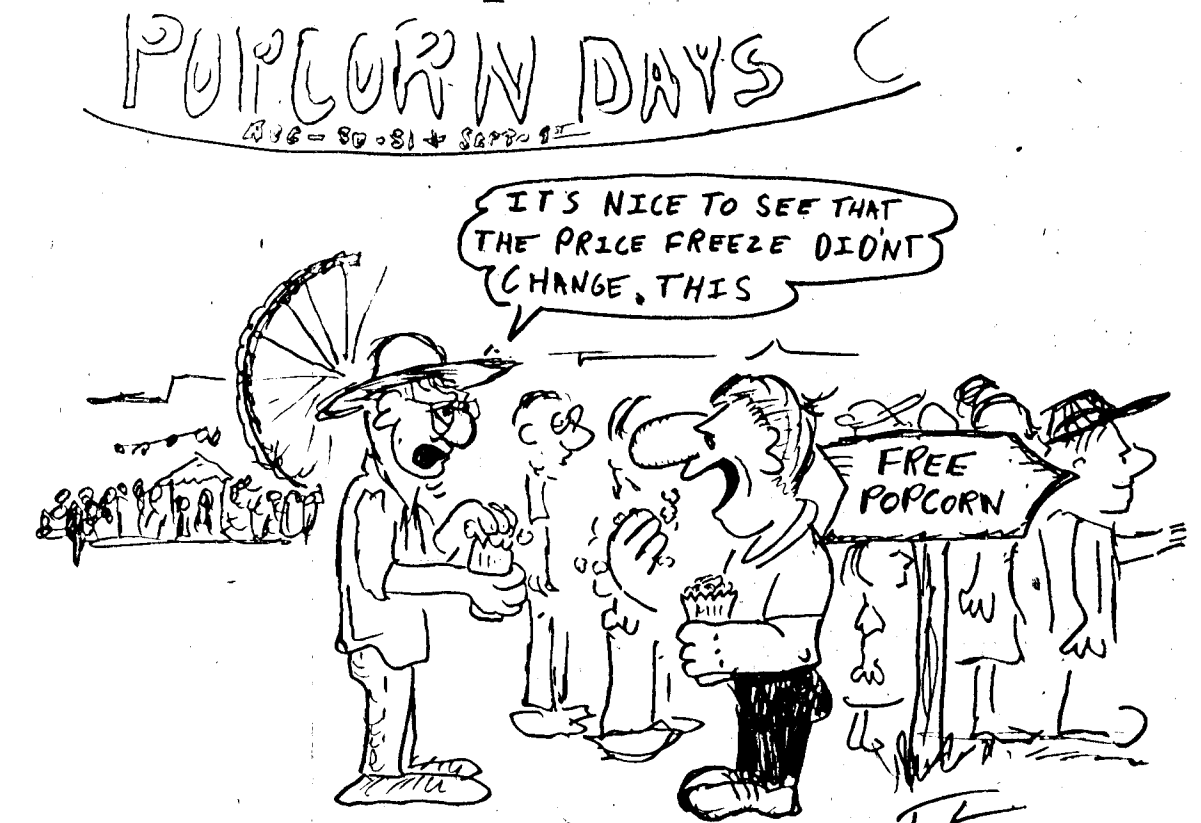 POPCORN DAYS
AUG - 30 - 31 + SEPT - 1ST
IT'S NICE TO SEE THAT
THE PRICE FREEZE DID'NT
CHANGE. THIS
FREE
POPCORN